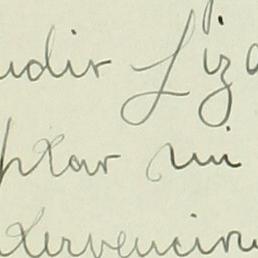 udir Liza
ptar mi
tervencion